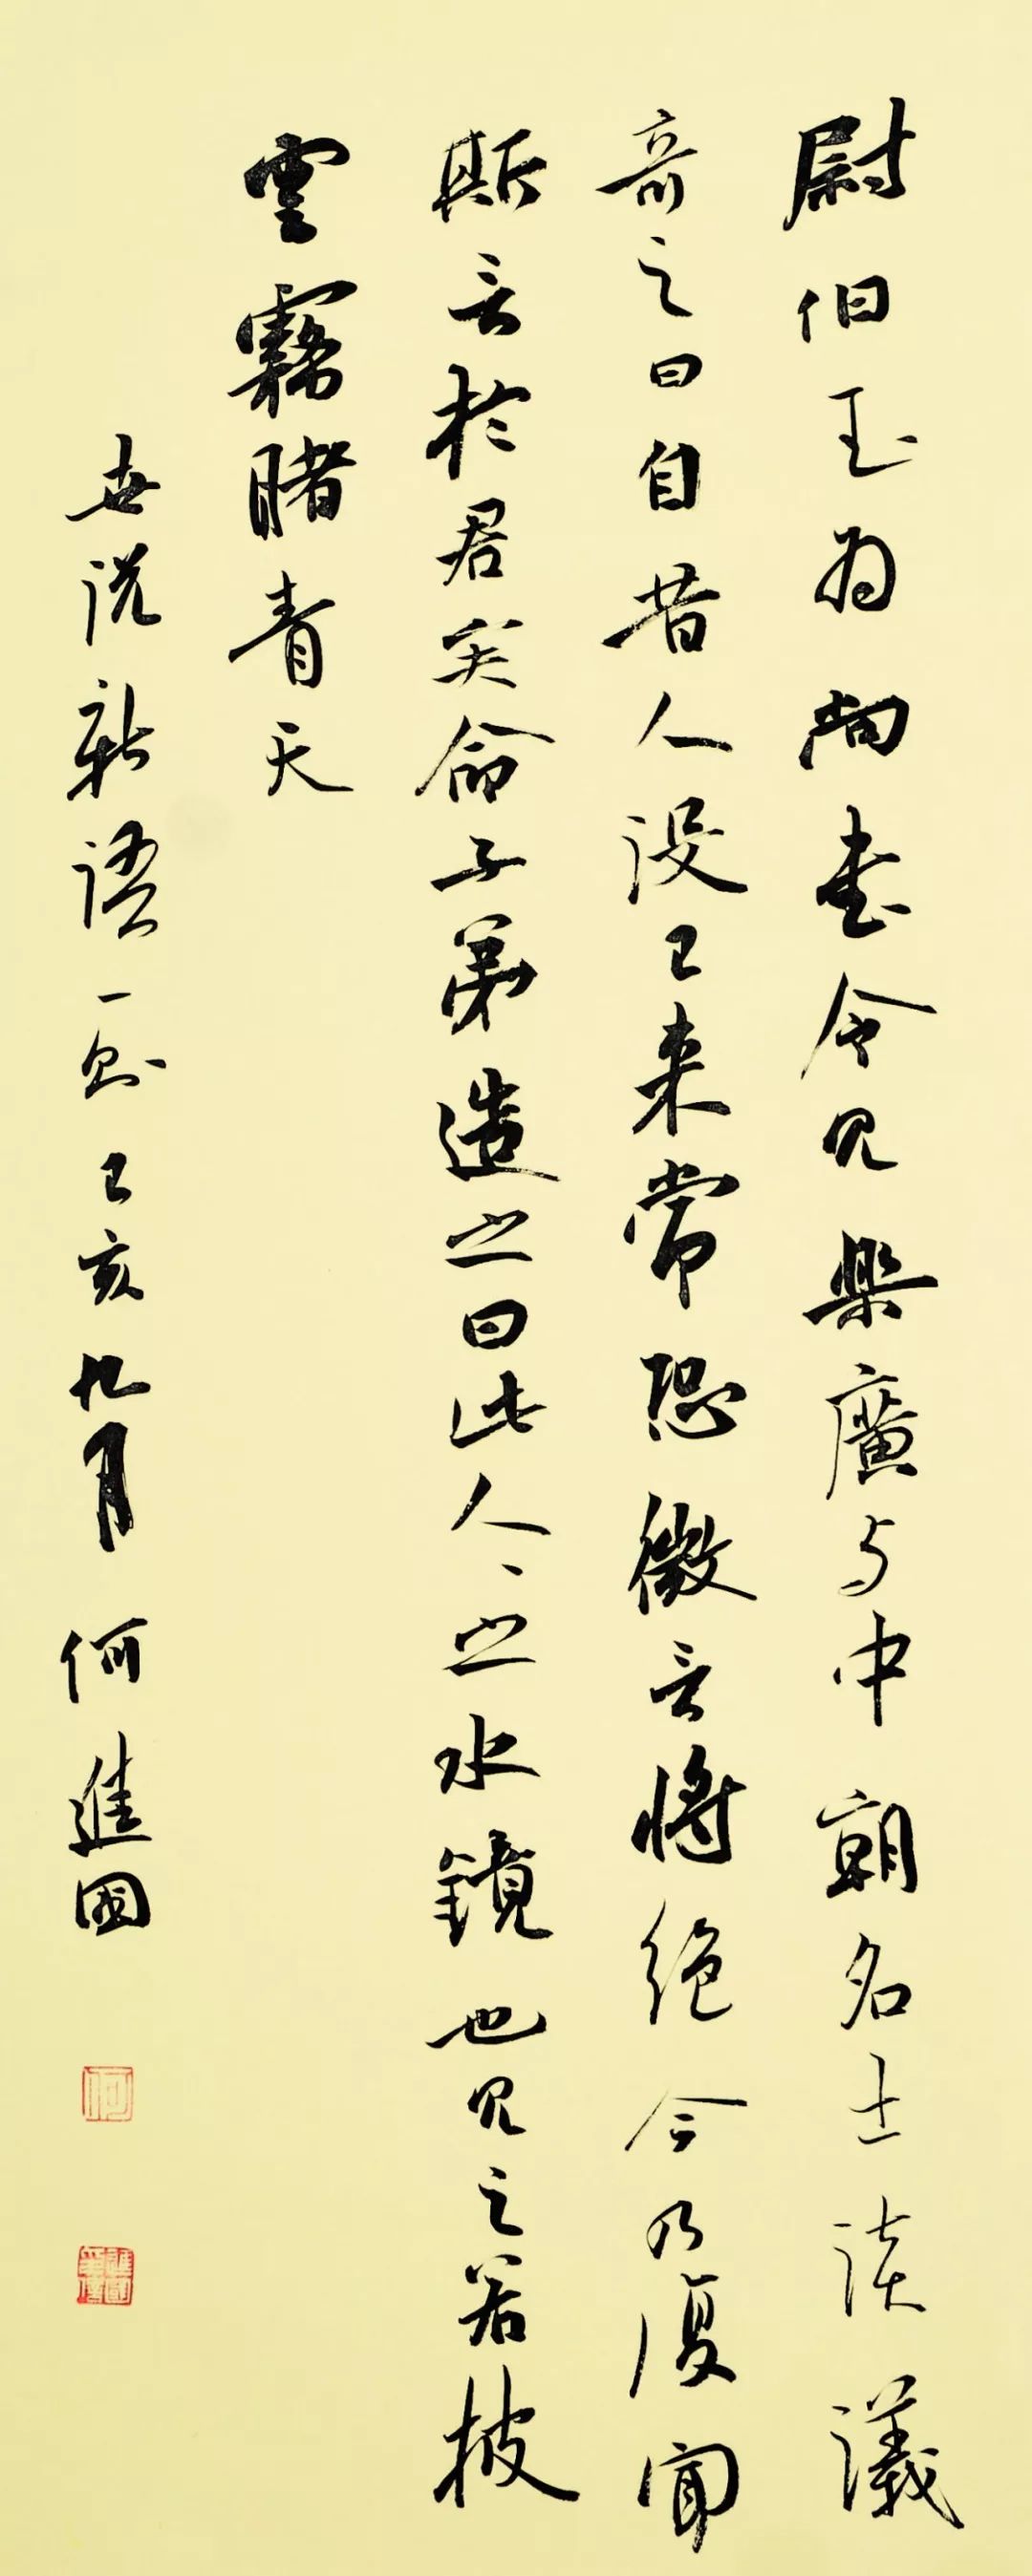 尉伯玉为尚書令見樂廣与中朝名士談議
奇之曰自昔人没已来常恐微言将絶今乃復聞
斯言於君矣命子弟造之曰此人人之水鏡也見之若披
雲霧睹青天
世説新語一則己亥九月何進國
何